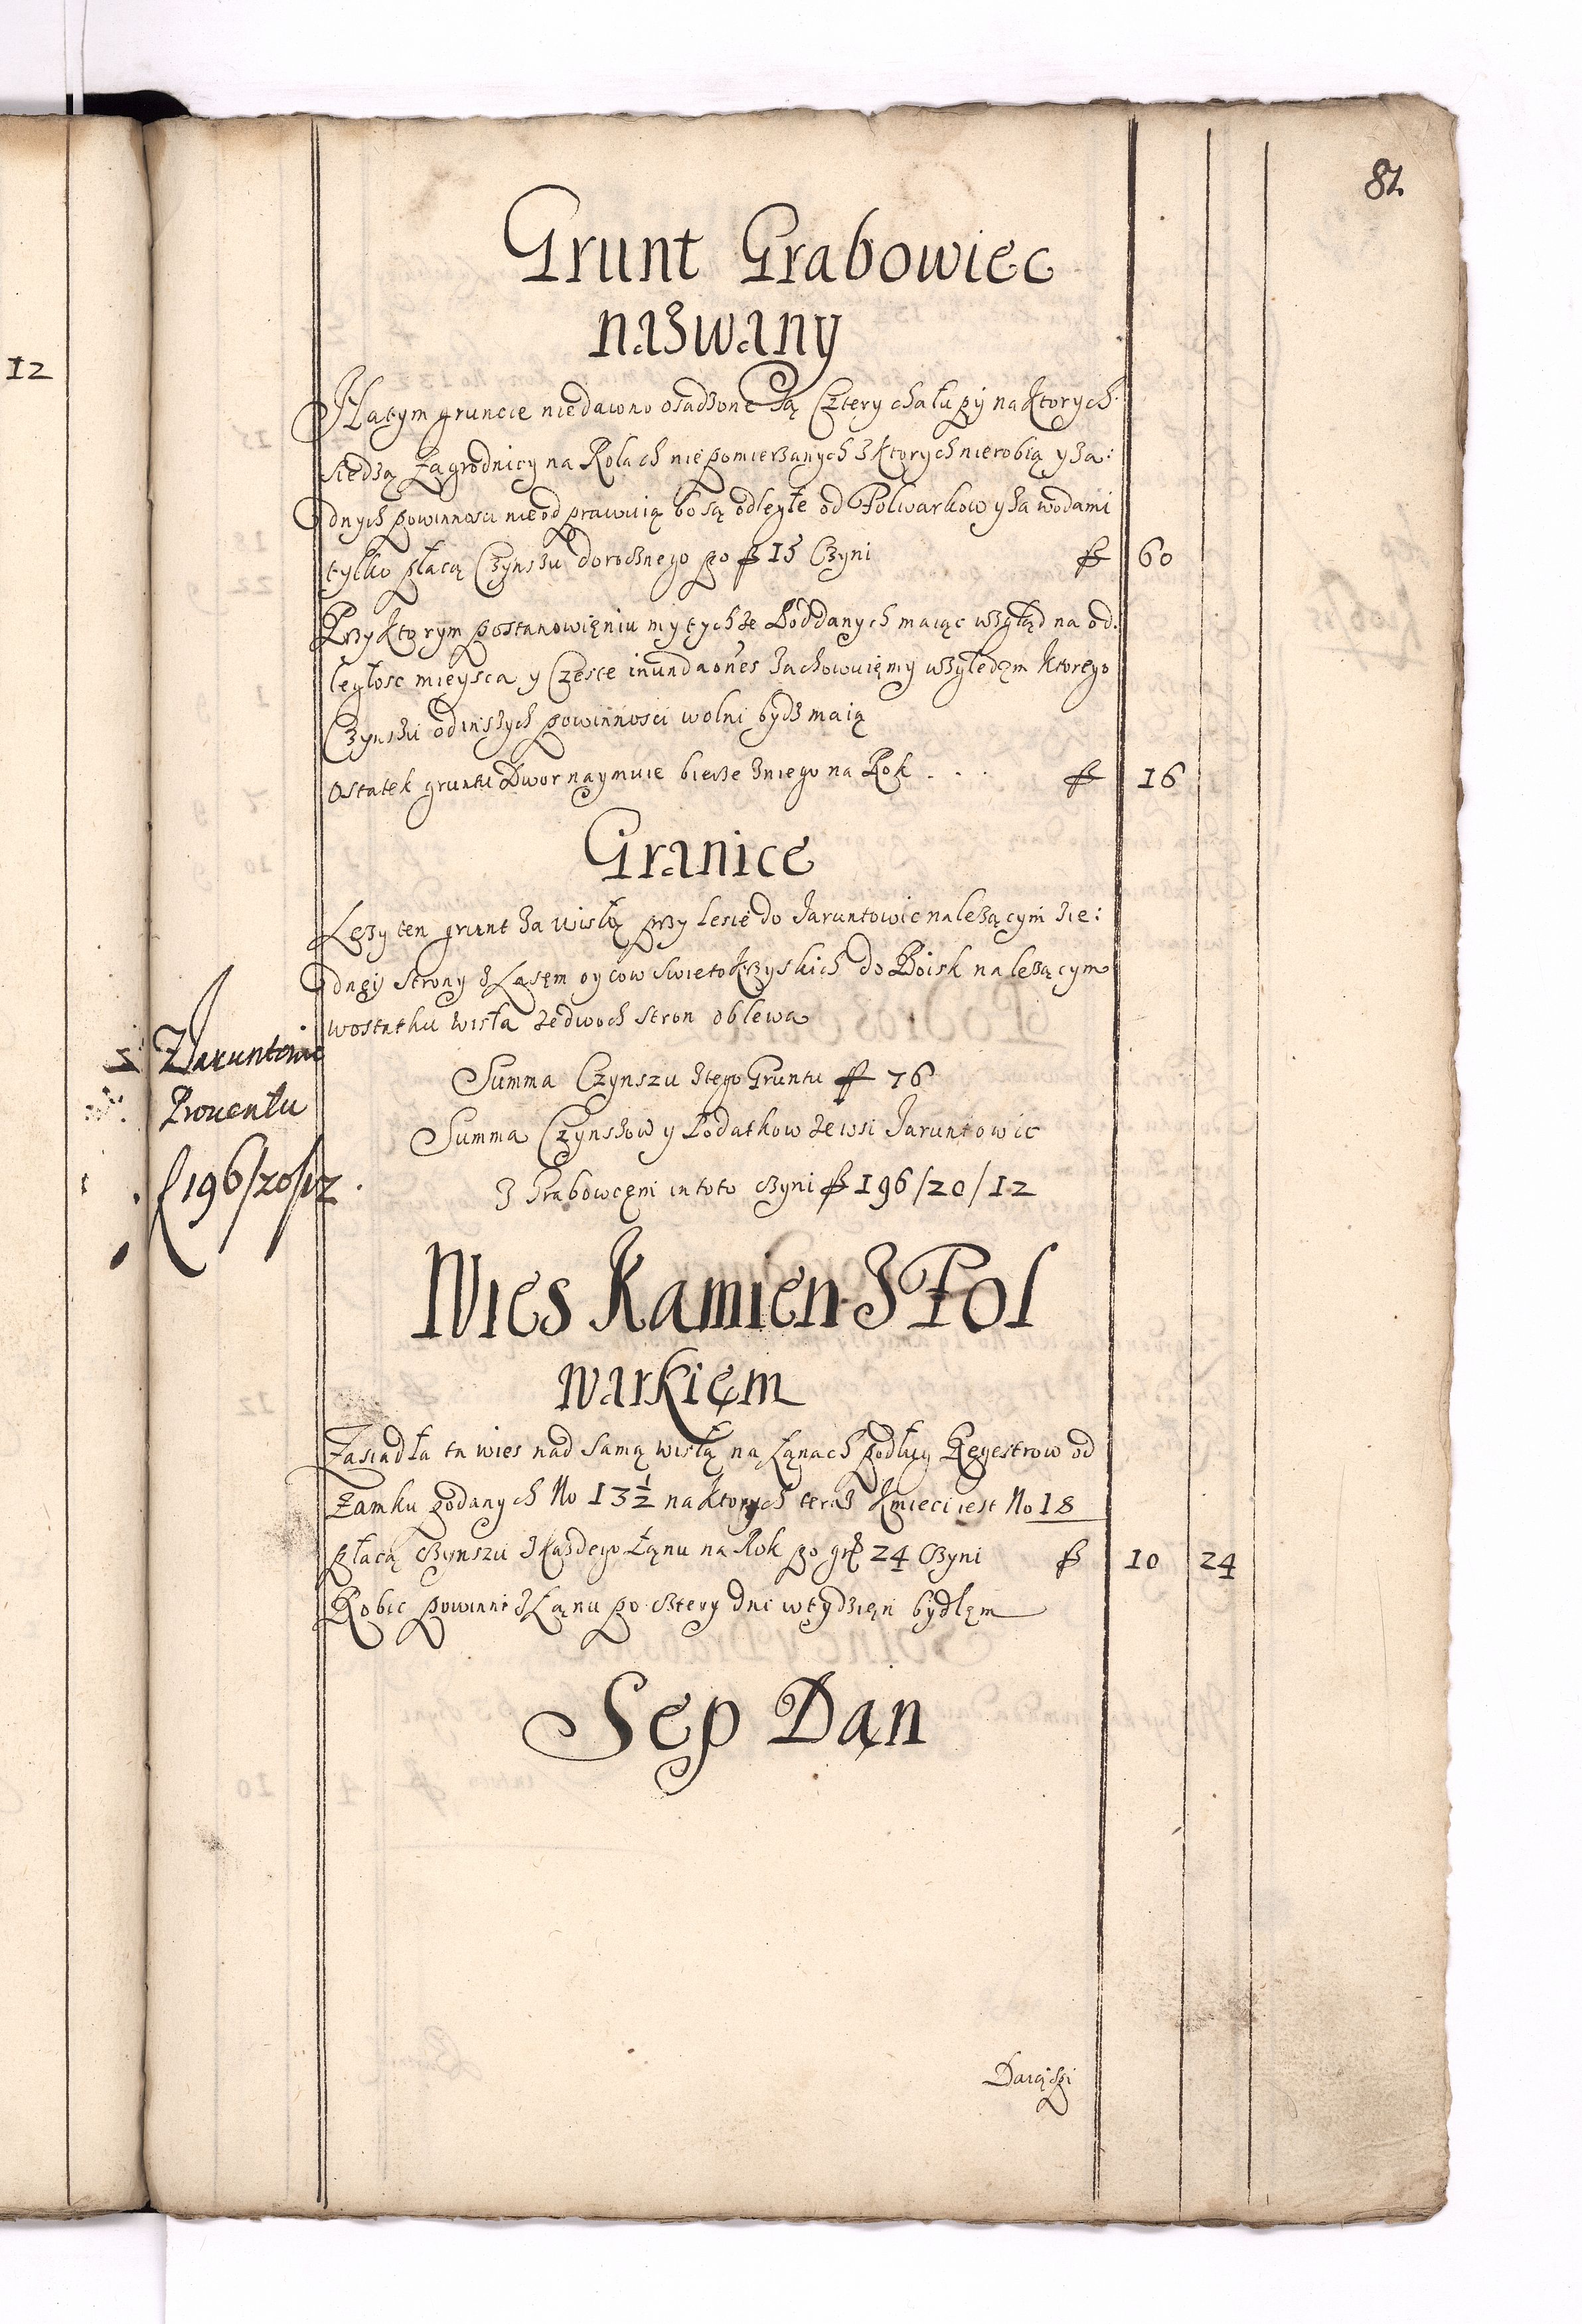 81.
12
Grunt Grabowiec
nazwany
Na tym gruncie niedawno osadzone są Cztery chałupy na ktorych
siedzą Zagrodnicy na Rolach nie pomierzanych z ktorych nie robią y ża:
dnych powinnosci nie odprawuią bo są odległe od Folwarkow y za wodami
tylko płacą Czynszu dorocznego po ƒ 15 Czyni ƒ 60
Przy ktorym postanowięniu my tychże Poddanych maiąc wzgląd na od:
ległosc mieysca y Częste inundaones zachowuięmy względęm ktorego
Czynszu od inszych powinnosci wolni bydz maią
Ostatek gruntu Dwor naymuie bierze z niego na Rok . . . ƒ 16
Granice
Lezy ten grunt za wisłą przy lesie do Jaruntowic nalezącym ze:
dnęy strony z Lasęm oycow Swietokrzyskich do Boisk nalezącym
w ostatku wisła ze dwoch stron oblewa
Summa Czynszu z tego Gruntu ƒ 76
Summa Czynszow y Podatkow ze wsi Jaruntowic
z Grabowcęm in toto czyni ƒ 196/20/12
Z Jaruntowic
Prouentu
ƒ 196/20/12
Wies Kamien z Fol
warkięm
Zasiadła ta wies nad samą wisłą na Łąnach podług Regestrow od
Zamku podanych No 13 1/2 na ktorych teraz kmieci iest No 18
płacą czynszu z kazdego Łąnu na Rok po gr 24 Czyni ƒ 10 24
Robic powinni z Łąnu po cztery dni w tydzięn bydlęm
Sep Dan